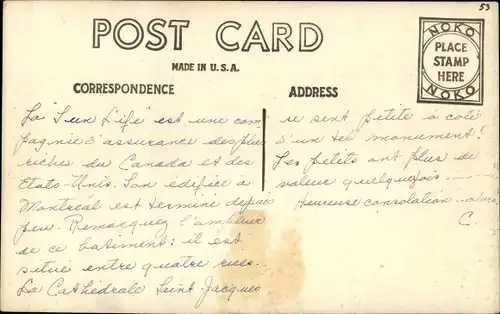 53
POST CARD
MADE IN U.S.A.
CORRESPONDENCE
ADDRESS
NOKO
PLACE
STAMP
HERE
NOKO
La "Sun Life" est une com
pagnie d'assurance des plus
riches du Canada et des
Etats-Unis. Son édifice a
Montréal est terminé depuis
peu. Remarquez l'ampleur
de ce batiment: il est
situé entre quatre rues.
La Cathédrale Saint Jacques
se sent petite à coté
d'un tel monument!
Les petits ont plus de
valeur quelquefois.
Heureuse consolation
C.